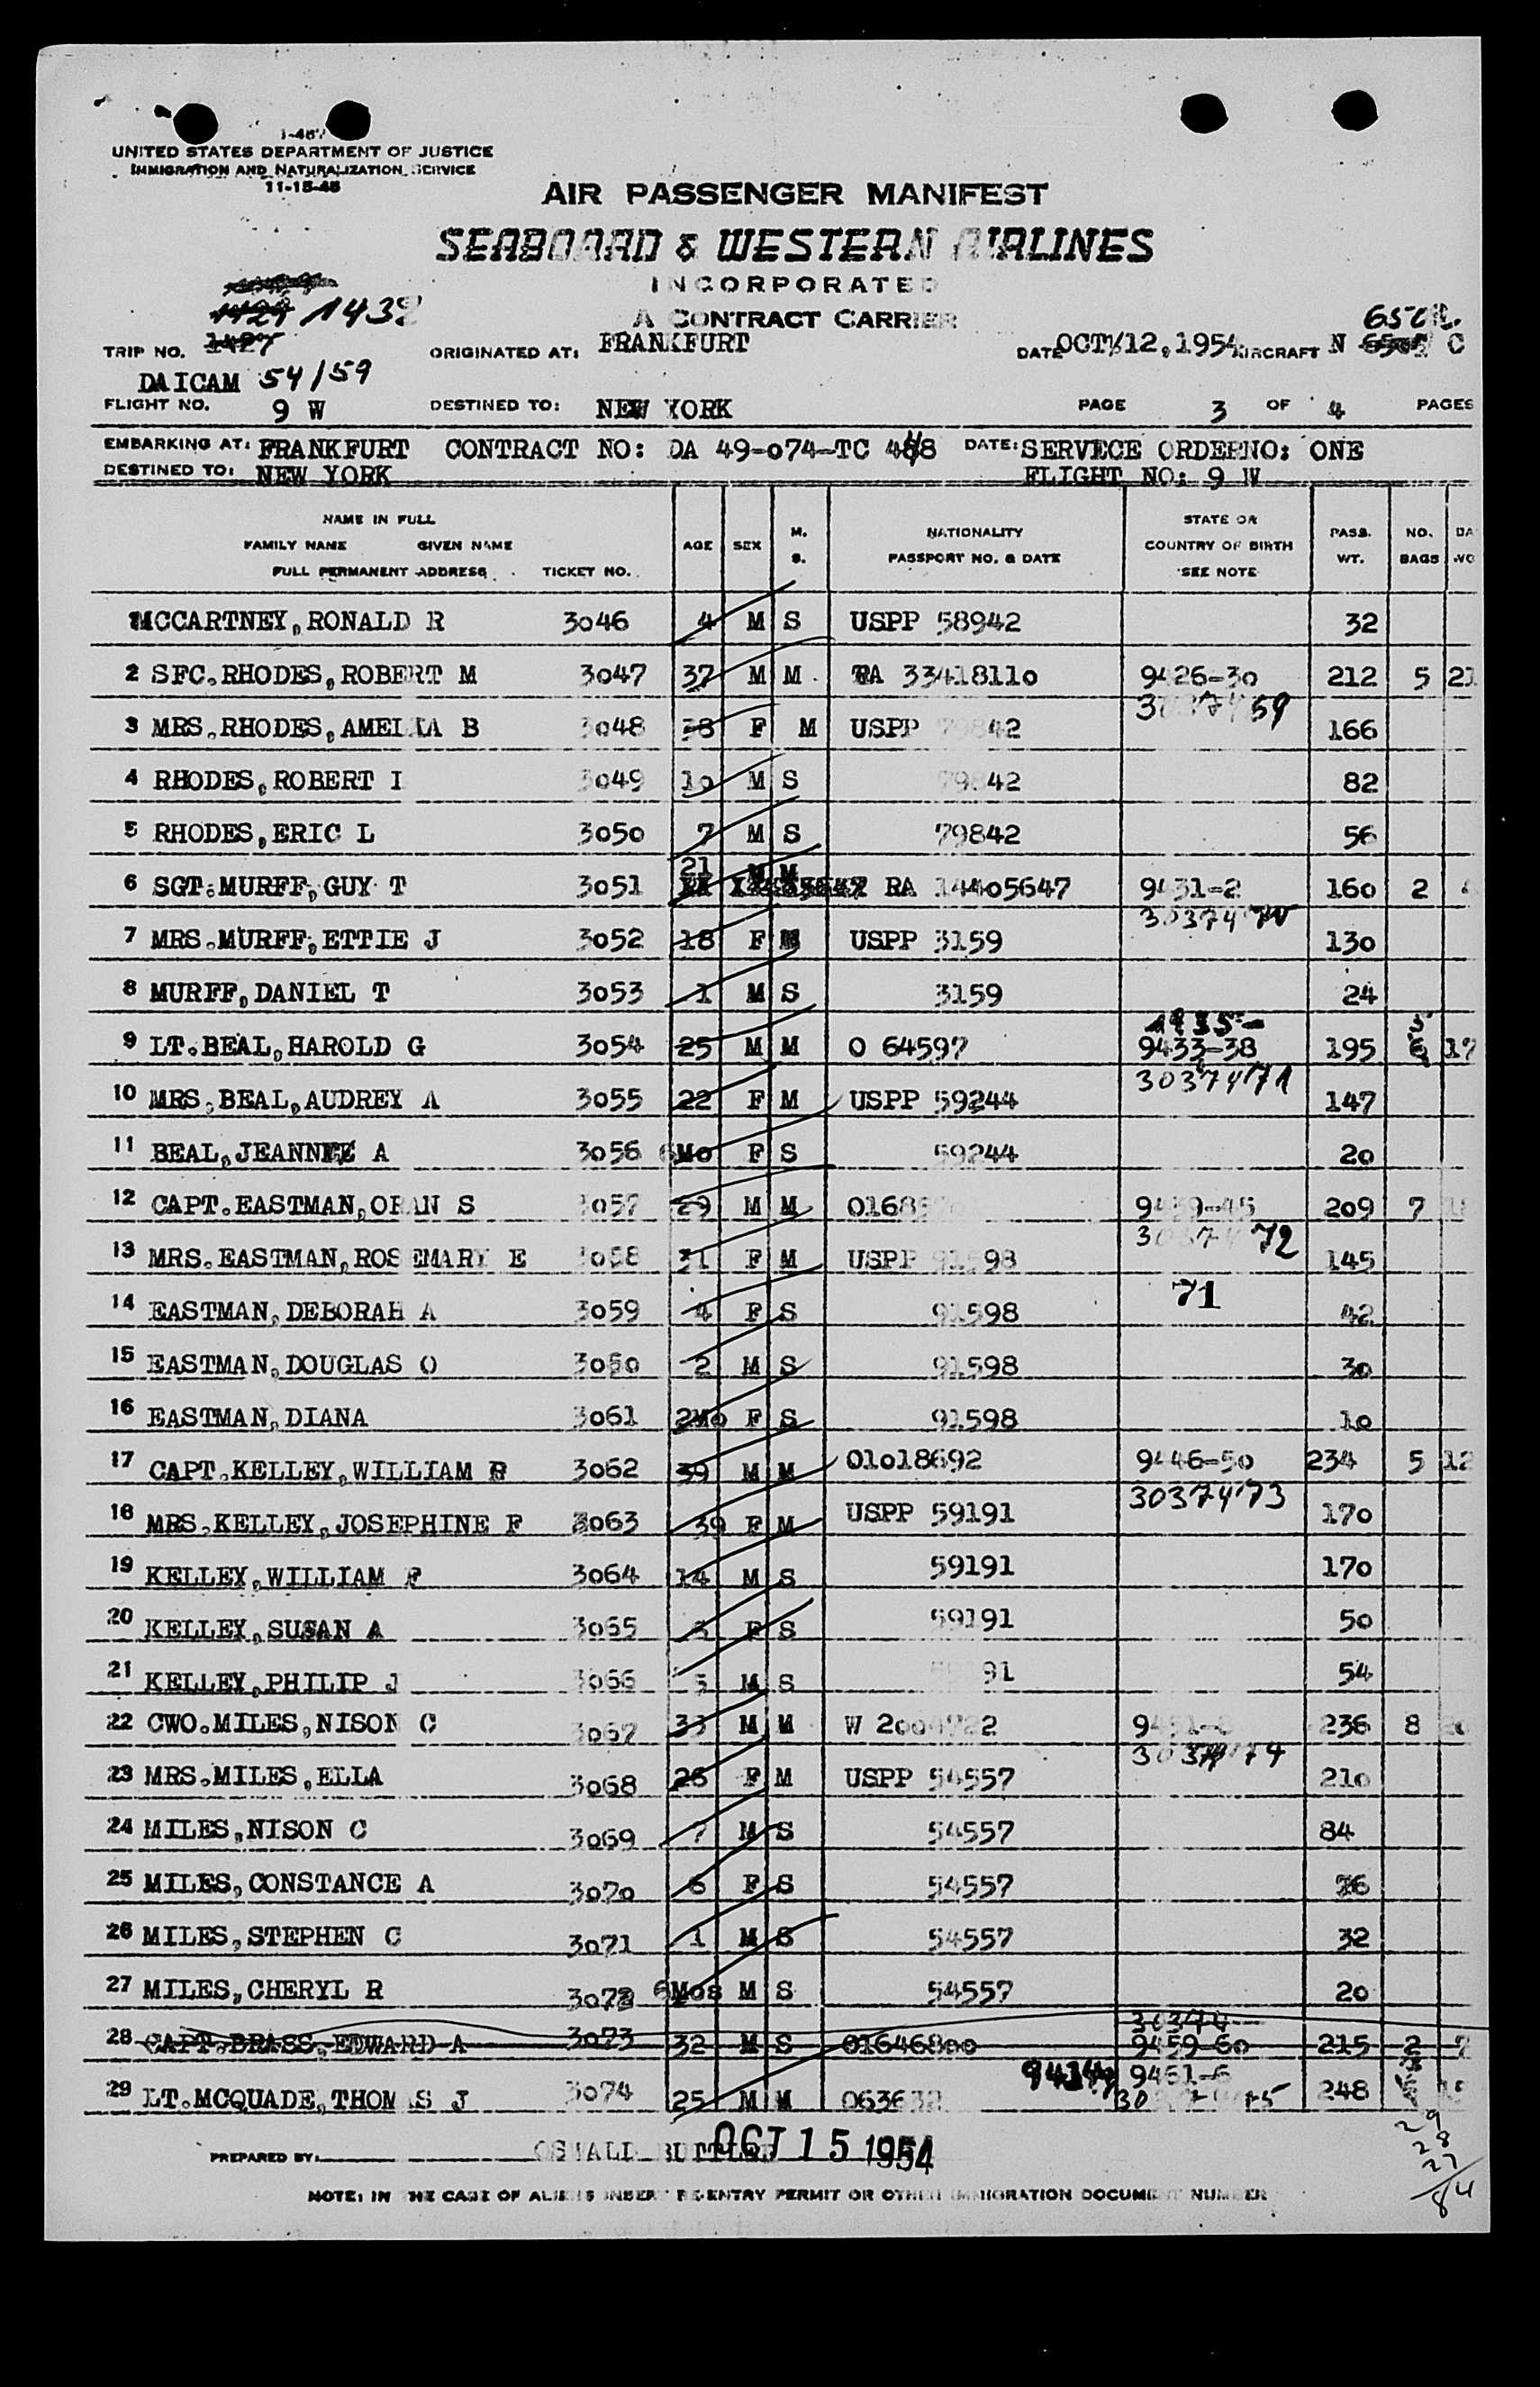 I-467
UNITED STATES DEPARTMENT OF JUSTICE
IMMIGRATION AND NATURALIZATION SERVICE
11-15-48
AIR PASSENGER MANIFEST
SEABOARD & WESTERN AIRLINES
INCORPORATED
A CONTRACT CARRIER
1429 1432
TRIP NO. 1427 ORIGINATED AT: FRANKFURT DATE OCT/12,1954 AIRCRAFT N C
DAICAM 54/59
FLIGHT NO. 9 W DESTINED TO: NEW YORK PAGE 3 OF 4 PAGES
EMBARKING AT: FRANKFURT CONTRACT NO: DA 49-074-TC 448 DATE: SERVECE ORDERNO: ONE
DESTINED TO: NEW YORK FLIGHT NO: 9 W
NAME IN FULL
FAMILY NAME GIVEN NAME
FULL PERMANENT ADDRESS TICKET NO. AGE SEX M. S. NATIONALITY PASSPORT NO. & DATE STATE OR COUNTRY OF BIRTH SEE NOTE PASS. WT. NO. BAGS
MCCARTNEY,RONALD R 3046 4 M S USPP 58942 32
2 SFC.RHODES,ROBERT M 3047 37 M M RA 33418110 9426-30 212 5 21
3 MRS.RHODES,AMELIA B 3048 38 F M USPP 79842 166
4 RHODES,ROBERT I 3049 10 M S 79842 82
5 RHODES,ERIC L 3050 7 M S 79842 56
6 SGT.MURFF,GUY T 3051 21 M M RA 14405647 9431-2 160 2
7 MRS.MURFF,ETTIE J 3052 18 F M USPP 3159 130
8 MURFF,DANIEL T 3053 1 M S 3159 24
9 LT.BEAL,HAROLD G 3054 25 M M O 64597 9433-38 195 5 17
3037471
10 MRS.BEAL,AUDREY A 3055 22 F M USPP 59244 147
11 BEAL,JEANNEE A 3056 6Mo F S 59244 20
12 CAPT.EASTMAN,ORAN S 3057 29 M M 9439-45 209 7
3037472
13 MRS.EASTMAN,ROSEMARY E 3058 31 F M USPP 91598 145
71
14 EASTMAN,DEBORAH A 3059 4 F S 91598 42
15 EASTMAN,DOUGLAS O 3060 2 M S 91598 30
16 EASTMAN,DIANA 3061 2Mo F S 91598 10
17 CAPT.KELLEY,WILLIAM B 3062 39 M M 01018692 9446-50 234 5 12
3037473
18 MRS.KELLEY,JOSEPHINE F 3063 39 F M USPP 59191 170
19 KELLEY,WILLIAM F 3064 14 M S 59191 170
20 KELLEY,SUSAN A 3065 F S 59191 50
21 KELLEY,PHILIP J 3066 5 M S 59191 54
22 CWO.MILES,NISON C 3067 33 M M 236 8
3037474
23 MRS.MILES,ELLA 3068 26 F M USPP 54557 210
24 MILES,NISON C 3069 7 M S 54557 84
25 MILES,CONSTANCE A 3070 6 F S 54557 76
26 MILES,STEPHEN C 3071 1 M S 54557 32
27 MILES,CHERYL R 3072 6Mos M S 54557 20
30374
28 CAPT.BRASS,EDWARD A 3073 32 M S 01646800 9459-60 215 2 7
29 LT.MCQUADE,THOMAS J 3074 25 M M 9461-6 248
PREPARED BY: OCT 15 1954
NOTE: IN THE CASE OF ALIENS INSERT RE-ENTRY PERMIT OR OTHER IMMIGRATION DOCUMENT NUMBER
29
28
27
84